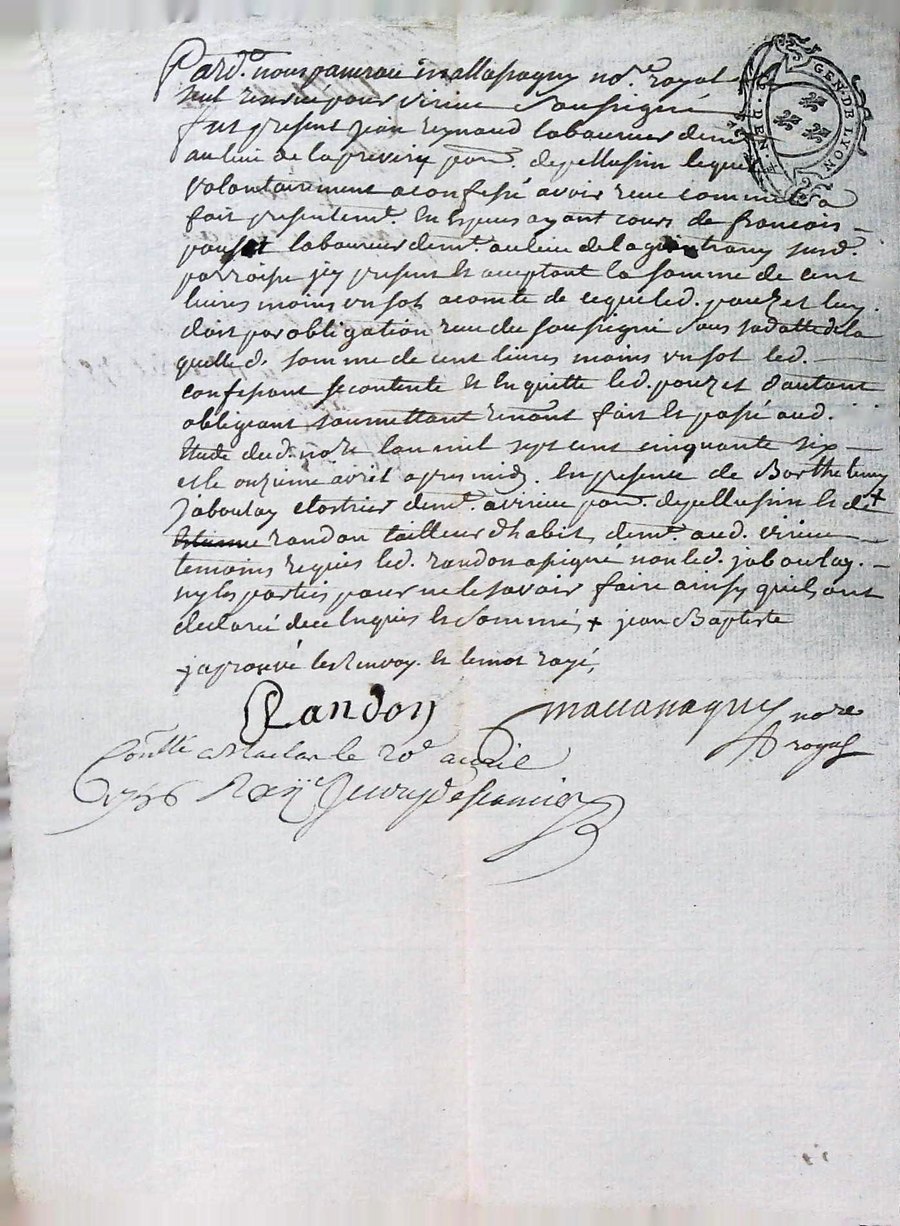 GEN. DE LYON
Pard.t nous notre royal
seul reservé pour virieu soussigné
fut present jean reynaud laboureur dem.t
au lieu de la parr. de pellussin lequel
volontairement a confessé avoir reçeu comme il a
fait presentem.t en espèces ayant cours de francois
pouzet laboureur dem.t au lieu de susd.
parroisse jcy present et aceptant la somme de cent
livres moins un sol acomte de ce que led. pouzet luy
doit par obligation reçue du soussigné sous sa datte de la
quelle d. somme de cent livres moins un sol led.
confessant se contente et en quitte led. pouzet d'autant
obligeant soumettant renonçant fait et passé aud.
étude dud. no.re l'an mil sept cent cinquante six
et le onzieme avril apres midy en presence de Barthelemy
jaboulay dem.t a virieu parr. de pellussin et de +
randon tailleur d'habits dem.t aud. virieu
temoins requis led. randon a signé non led. jaboulay
ny les parties pour ne le savoir faire ainsy quils ont
declaré de ce enquis et sommés + jean Baptiste
j'aprouvé le renvoy et le mot rayé
Randon
no.re
royal
Con.llé le 20e avril
1756 Reçu